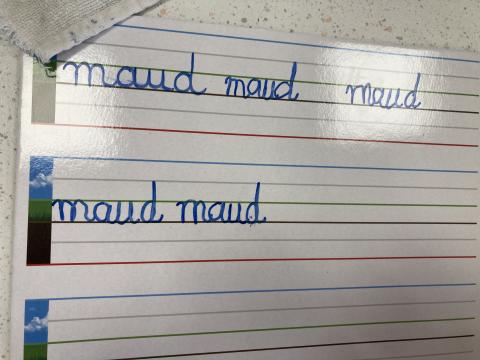 maud maud maud
maud maud